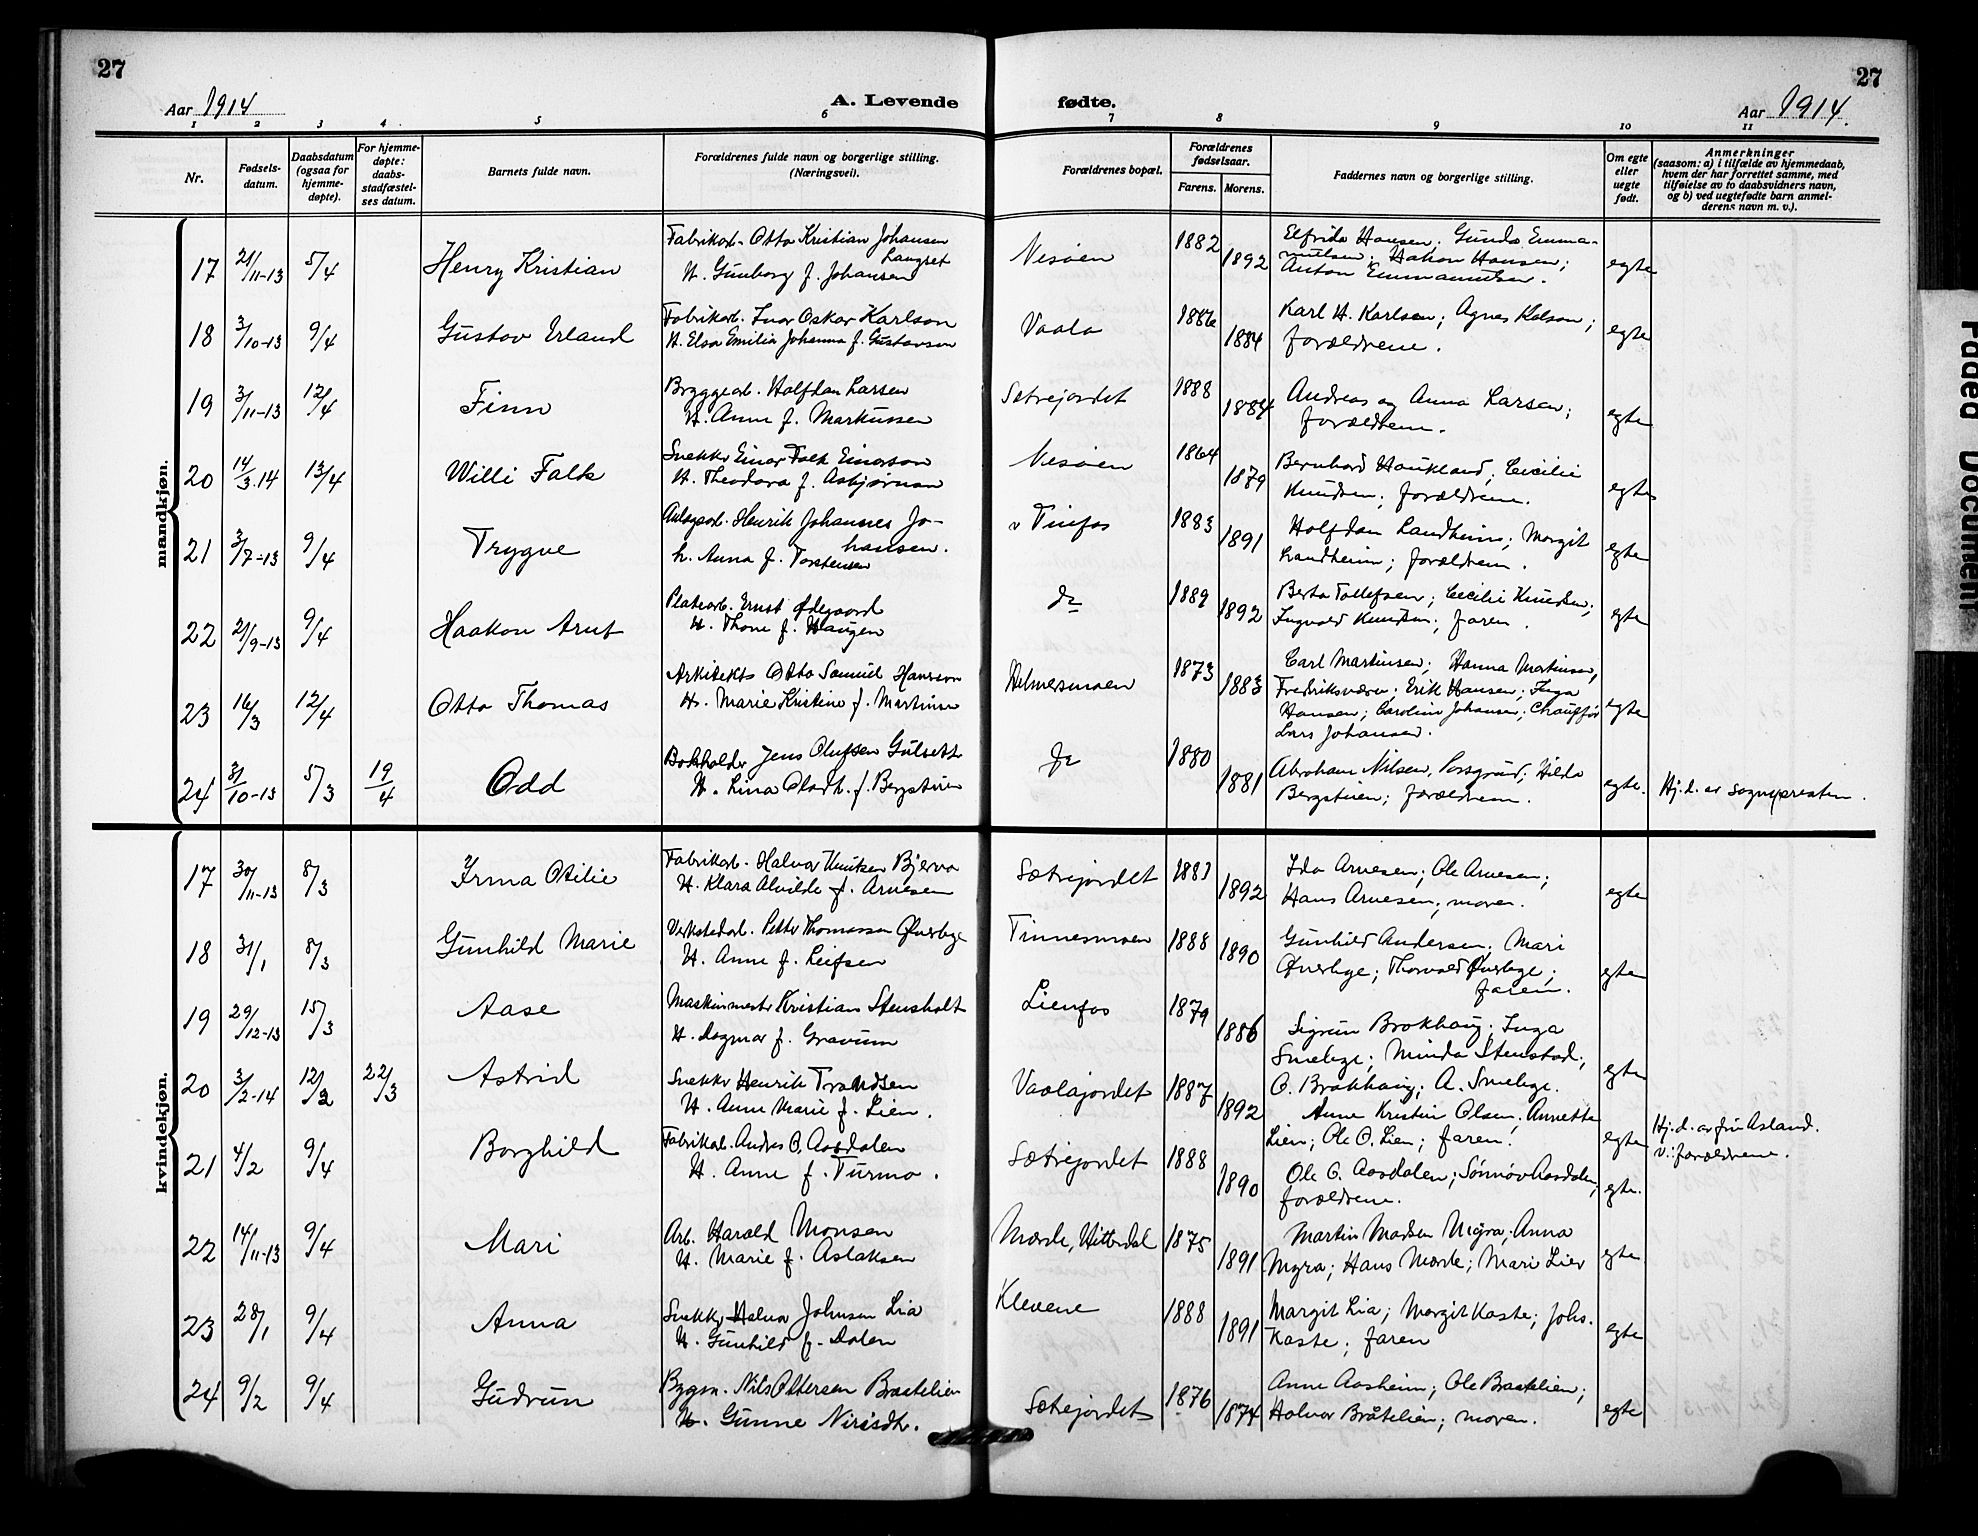 27
27
Aar 1914
A. Levende fødte.
Aar 1914.
1 2 3 4 5 6 7 8 9 10 11
Nr.
Fødsels-
datum.
Daabsdatum
(ogsaa for
hjemme-
døpte).
For hjemme-
døpte:
daabs-
stadfæstel-
ses datum.
Barnets fulde navn.
Forældrenes fulde navn og borgerlige stilling.
(Næringsvei).
Forældrenes bopæl.
Forældrenes
fødselsaar.
Farens. Morens.
Faddernes navn og borgerlige stilling.
Om egte
eller
uegte
født.
Anmerkninger
(saasom: a) i tilfælde av hjemmedaab,
hvem der har forrettet samme, med
tilføielse av to daabsvidners navn,
og b) ved uegtefødte barn anmel-
derens navn m. v.).
mandkjøn.
17 21/11-13 5/4 Henry Kristian
Fabrikarb. Otto Kristian Johansen
Langset
H. Gunborg f. Johansen
Nesøen 1882 1892
Elfrida Hansen; Gunda Emma-
nuelsen; Hakon Hansen;
Anton Emmanuelsen.
egte
18 3/10-13 9/4 Gustav Erland
Fabrikarb. Ivar Oskar Karlson
H. Elsa Emilia Johanna f. Gustavson
Vaala 1886 1884
Karl H. Karlsen; Agnes Kalson;
forældrene.
egte
19 3/11-13 12/4 Finn
Bryggearb. Halfdan Larsen
H. Anne f. Markussen
Sætrejordet 1888 1884
Andreas og Anna Larsen;
forældrene.
egte
20 14/3.14 13/4 Willi Falk
Snekker Einar Falk Einarson
H. Theodora f. Asbjørnsen
Nesøen 1864 1879
Bernhard Haukland; Cecilie
Knudsen; forældrene.
egte
21 3/7-13 9/4 Trygve
Anlægsarb. Henrik Johannes Jo-
hansen.
h. Anna f. Torstensen
v Tinfos 1883 1891
Halfdan Landheim; Margit
Landheim; forældrene.
egte
22 21/9-13 9/4 Haakon Arnt
Platearb. Ernst Ødegaard
H. Thone f. Haugen
do 1889 1892
Berta Tollefsen; Cecilie Knudsen;
Ingvald Knudsen; faren.
egte
23 16/3 12/4 Otto Thomas
Arkitekt Otto Samuel Hansson
H. Marie Kristine f. Martinsen
Hilmersmoen 1873 1883
Carl Martinsen; Hanna Martinsen,
Fredriksværn; Erik Hansen; Inga
Hansen; Caroline Johansen; Chauffør
Lars Johansen.
egte
24 31/10-13 5/3 19/4 Odd
Bokholder Jens Olufsen Gulsett
H. Lina Olasdt. f. Bergstuen
do 1880 1881
Abraham Nilsen, Porsgrund; Hilda
Bergstuen; forældrene.
egte.
Hj.d. av sognepresten.
kvindekjøn.
17 30/11-13 8/3 Irma Otilie
Fabrikarb. Halvor Knutsen Bjerva
H. Klara Alvilde f. Arnesen
Sætrejordet 1883 1892
Ida Arnesen; Ole Arnesen;
Hans Arnesen; moren.
egte
18 31/1 8/3 Gunhild Marie
Verkstedarb. Petter Thomassen Øverbye
H. Anne f. Leifsen
Tinnesmoen 1888 1890
Gunhild Andersen; Mari
Øverbye; Thorvald Øverbye;
faren.
egte
19 29/12-13 15/3 Aase
Maskinmester Kristian Stensholt
H. Dagmar f. Gravum
Lienfos 1879 1886
Sigrun Brokhaug; Inga
Smebye; Minda Stenstad;
O. Brokhaug; A. Smebye.
egte
20 3/2-14 12/2 22/3 Astrid
Snekker Henrik Trondsen
H. Anne Marie f. Lien.
Vaalajordet 1887 1892
Anne Kristin Olsen; Annette
Lien; Ole O. Lien; faren.
egte
Hj.d. av fru Asland.
V.: forældrene.
21 4/2 9/4 Borghild
Fabrikarb. Andres O. Aasdalen
H. Anne f. Turmo.
Sætrejordet 1888 1890
Ole G. Aasdalen; Sønnøv Aasdalen;
forældrene.
egte.
22 14/11-13 9/4 Mari
Arb. Harald Monsen
H. Marie f. Aslaksen
Mærde, Hitterdal 1875 1891
Martin Madsen Myra; Anna
Myra; Hans Mærde; Mari Lier
egte
23 28/1 9/4 Anna
Snekker Halvor Johnsen Lia
H. Gunhild f. Dalen
Klevene 1888 1891
Margit Lia; Margit Kaste; Johs.
Kaste; faren
egte
24 9/2 9/4 Gudrun
Bygm. Nils Ottersen Braatelien
H. Gunne Nirisdtr.
Sætrejordet 1876 1874
Anne Aasheim; Ole Braatelien;
Halvor Bråtelien; moren.
egte
Faded Document